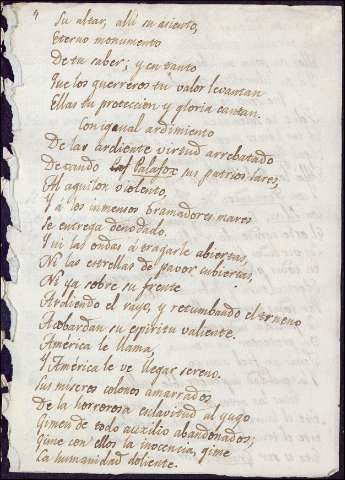 4
Su altar, allí su asiento,
Eterno monumento
De tu saber; y en tanto
Que los guerreros tu valor levantan
Ellas tu proteccion y gloria cantan.
Con igual ardimiento
De la ardiente virtud arrebatado
Dexando Palafox sus patrios lares,
Al aquilon violento,
Y á los inmensos bramadores mares
Se entrega denodado.
Y ni las ondas á tragarle abiertas,
Ni las estrellas de pavor cubiertas,
Ni ya sobre su frente
Ardiendo el rayo, y retumbando el trueno
Acobardan su espíritu valiente.
América le llama,
Y América le ve llegar sereno.
Sus míseros colonos amarrados
De la horrorosa esclavitud al yugo
Gimen de todo auxilio abandonados;
Gime con ellos la inocencia, gime
La humanidad doliente.